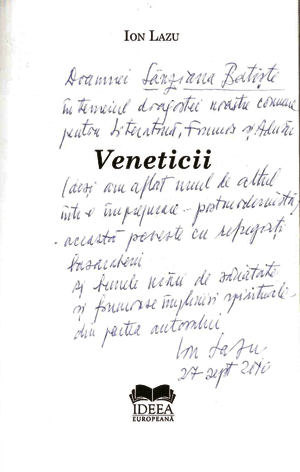 ION LAZU
Doamnei Sânziana Batiște
în temeiul dragostei noastre comune
pentru Literatură, Frumos și Adevăr
Veneticii
(deși am aflat unul de altul
într-o împrejurare... postmodernistă)
această poveste cu refugiați
basarabeni
și bunele urări de sănătate
și frumoase împliniri spirituale
din partea autorului
Ion Lazu
27 sept 2010
IDEEA
EUROPEANĂ